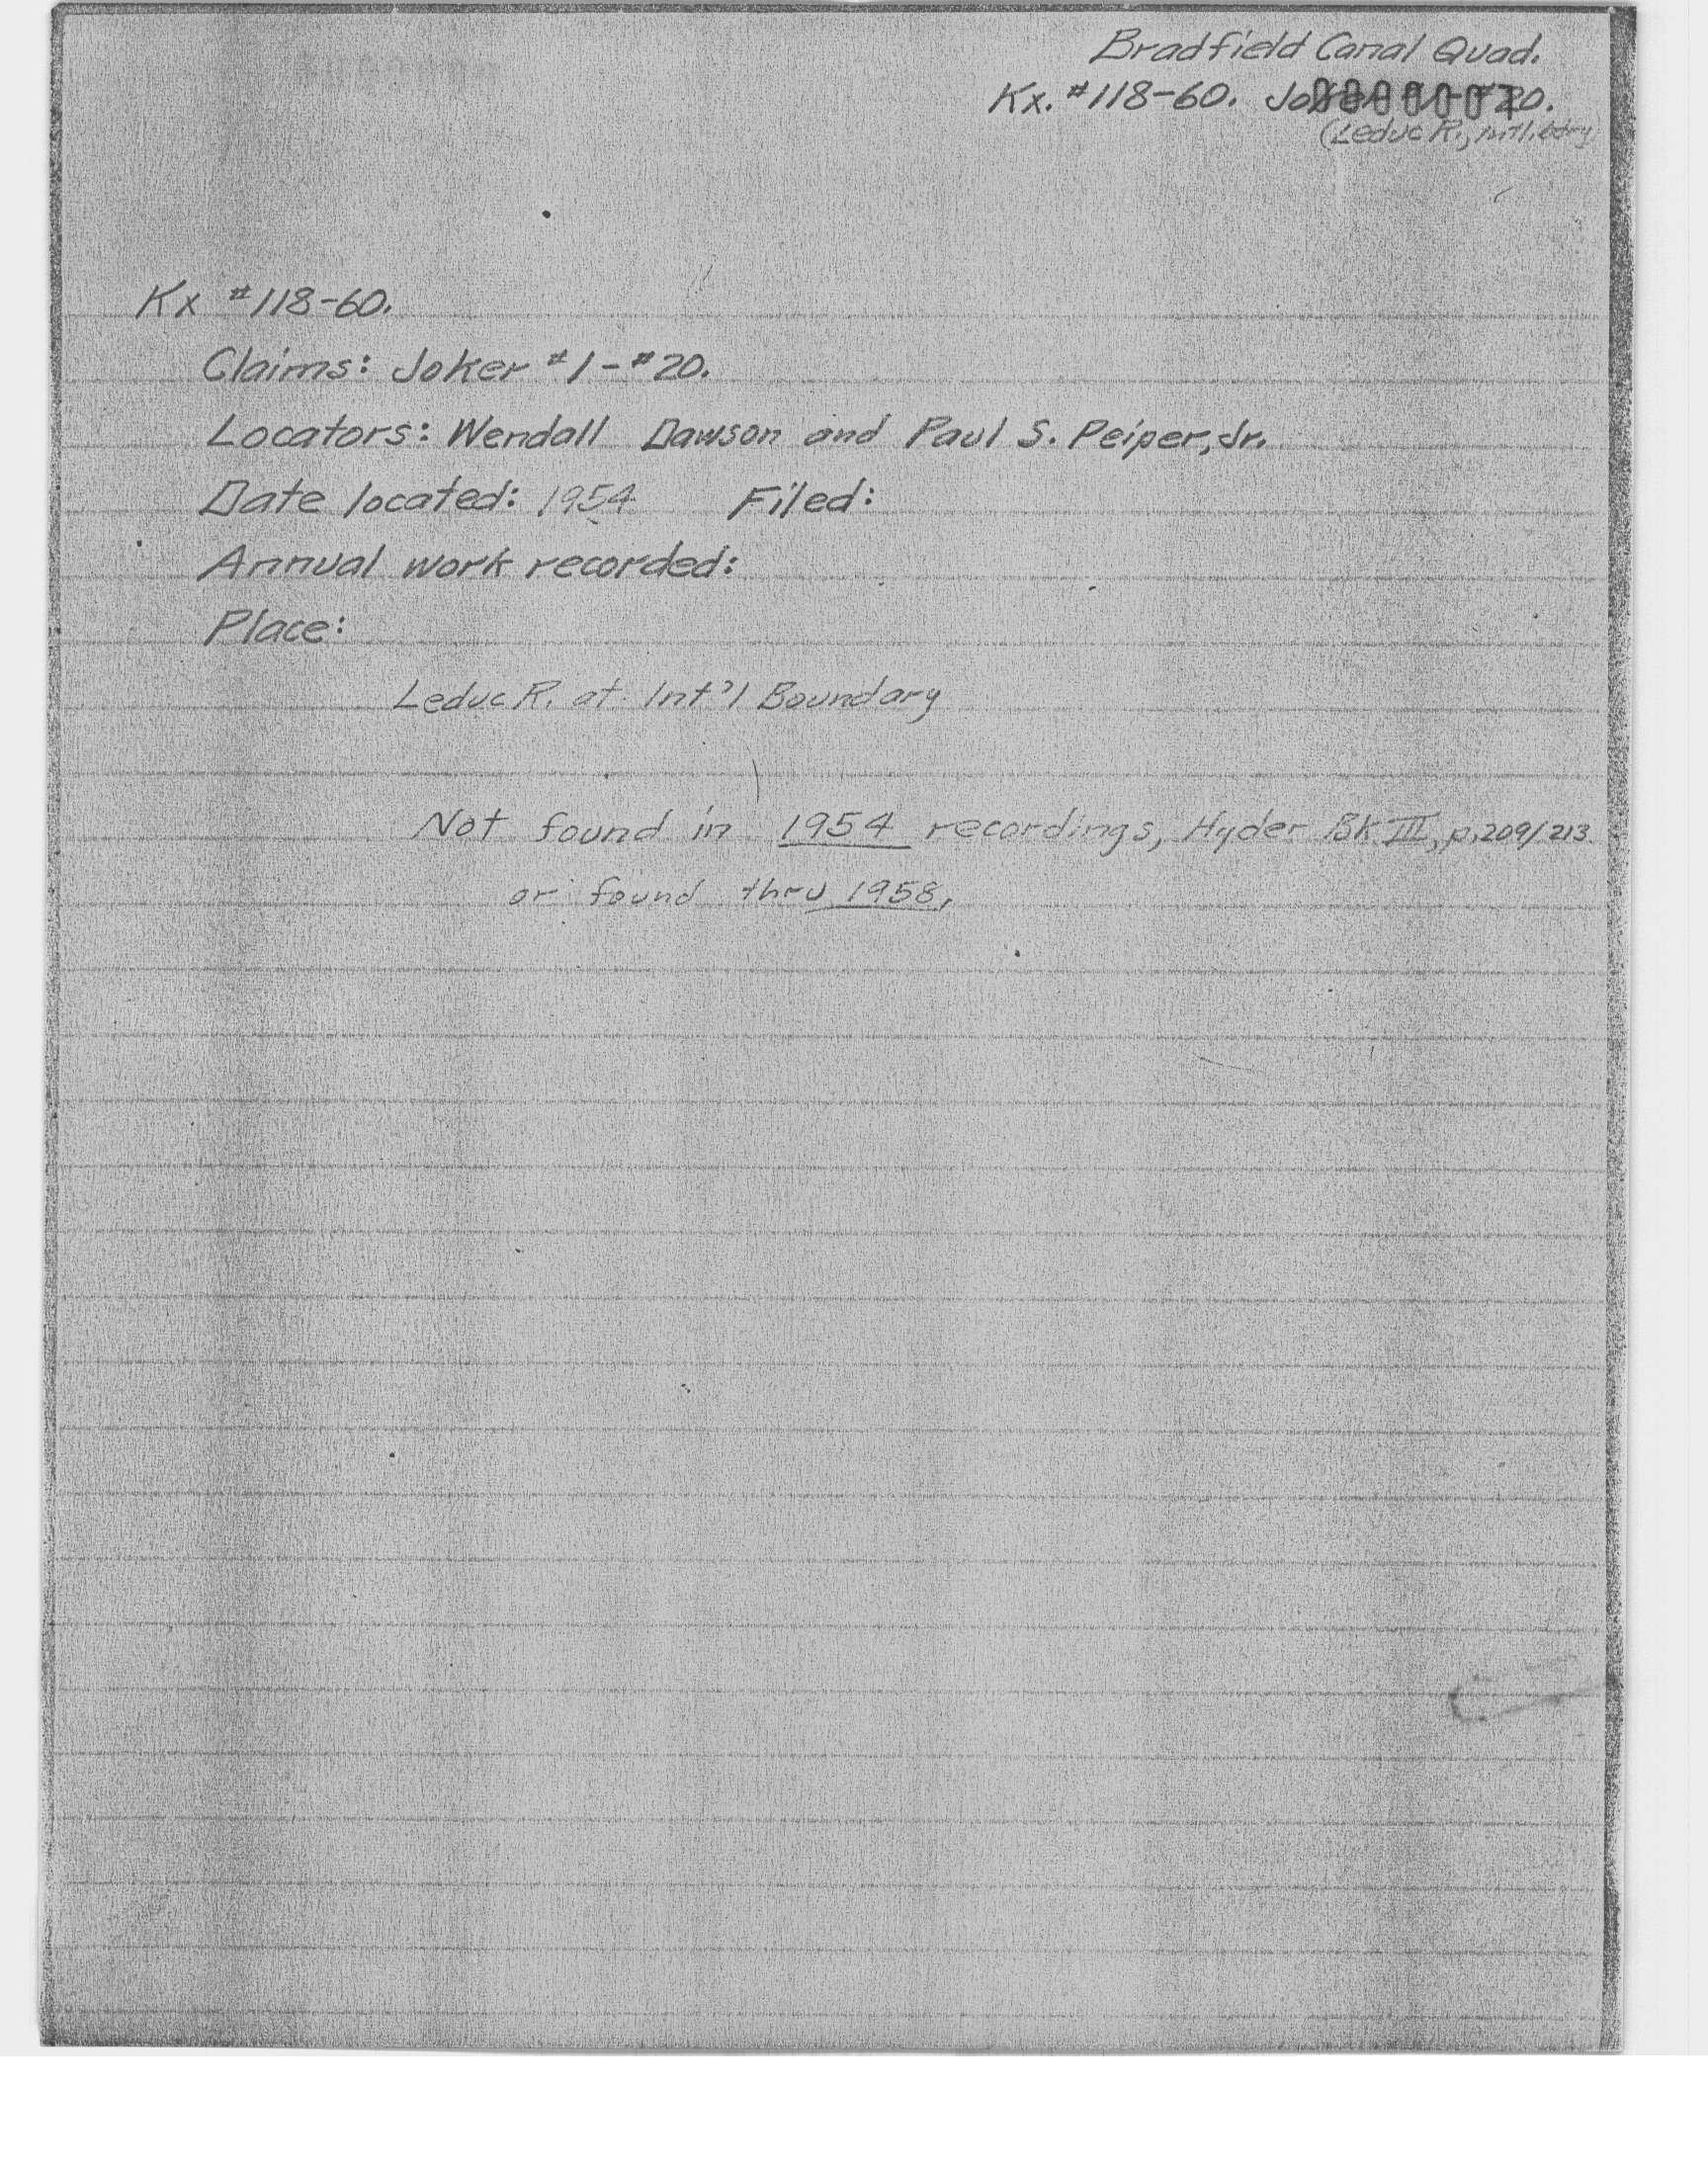 Bradfield Canal Quad.
Kx. #118-60. Joker #1-#20.
(Leduc R., Int'l. bdry)
Kx #118-60.
Claims: Joker #1-#20.
Locators: Wendall Dawson and Paul S. Peiper, Jr.
Date located: 1954 Filed:
Annual work recorded:
Place:
Leduc R. at Int'l Boundary
Not found in 1954 recordings, Hyder Bk III, p.209/213
or found thru 1958,